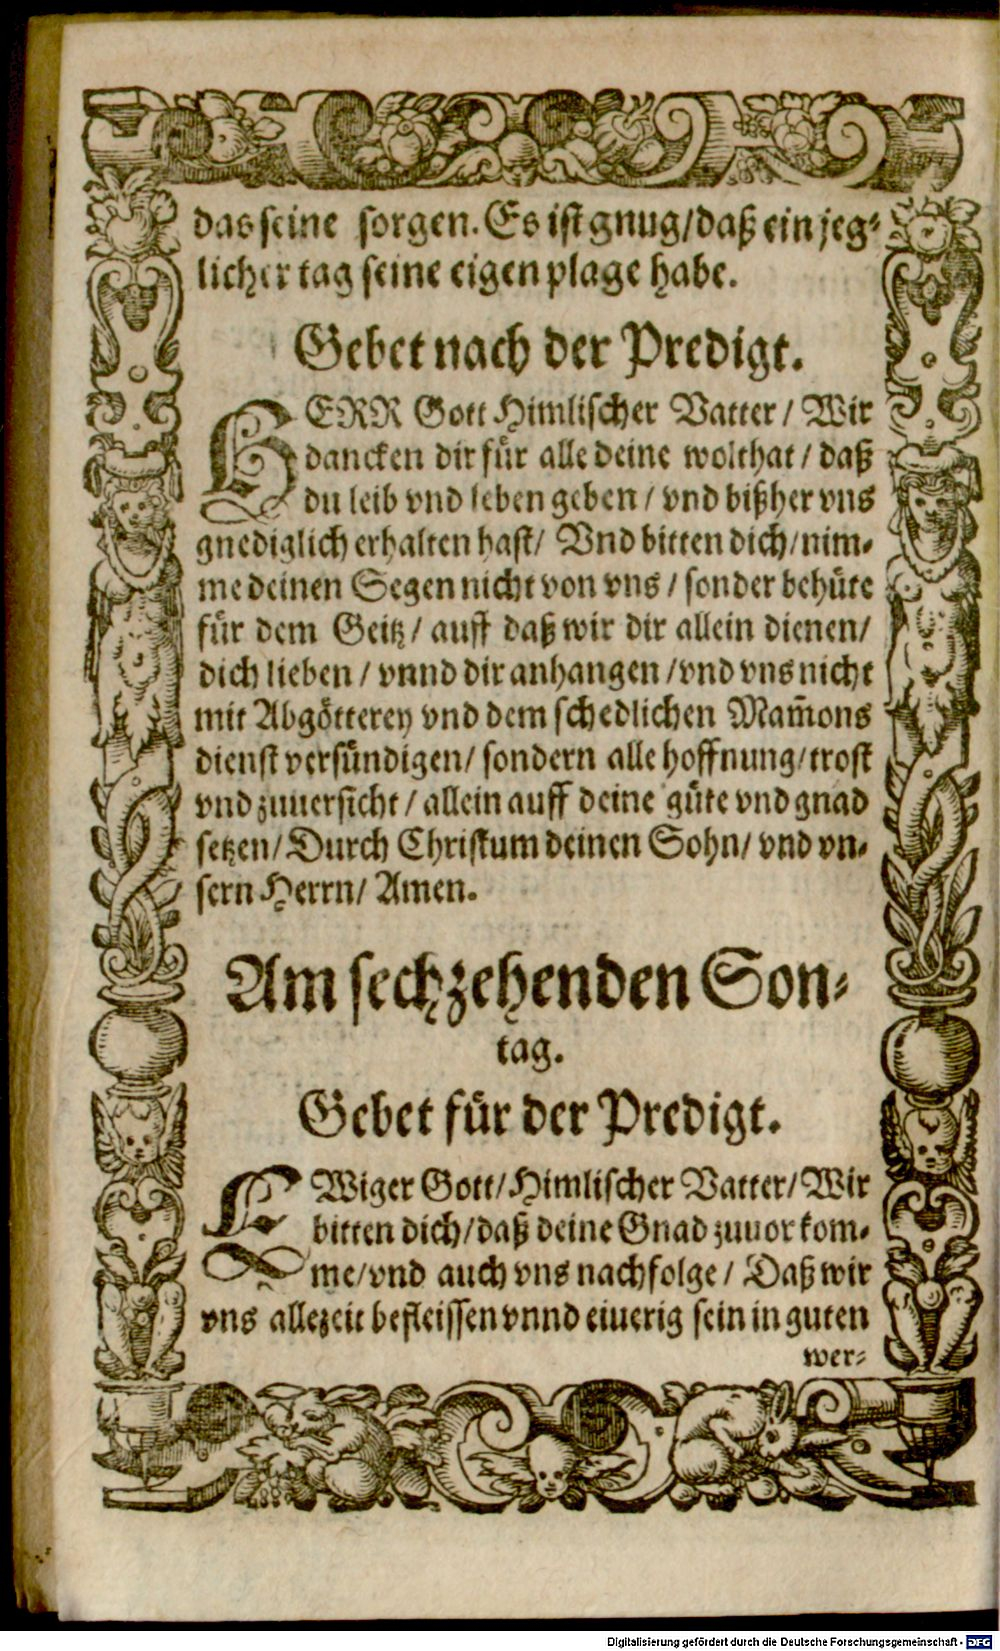 das seine sorgen. Es ist gnug/daß ein jeg⸗
licher tag seine eigen plage habe.
Gebet nach der Predigt.
HERR Gott Himlischer Vatter / Wir
dancken dir für alle deine wolthat / daß
du leib vnd leben geben / vnd bißher vns
gnediglich erhalten hast/ Vnd bitten dich/nim⸗
me deinen Segen nicht von vns / sonder behüte
für dem Geitz / auff daß wir dir allein dienen/
dich lieben / vnnd dir anhangen /vnd vns nicht
mit Abgötterey vnd dem schedlichen Mam̃ons
dienst versündigen/ sondern alle hoffnung/trost
vnd zuuersicht / allein auff deine güte vnd gnad
setzen/ Durch Christum deinen Sohn/ vnd vn⸗
sern Herrn/ Amen.
Am sechzehenden Son⸗
tag.
Gebet für der Predigt.
EWiger Gott/Himlischer Vatter/Wir
bitten dich/daß deine Gnad zuuor kom⸗
me/vnd auch vns nachfolge / Daß wir
vns allezeit befleissen vnnd eiuerig sein in guten
wer⸗
Digitalisierung gefördert durch die Deutsche Forschungsgemeinschaft - DFG